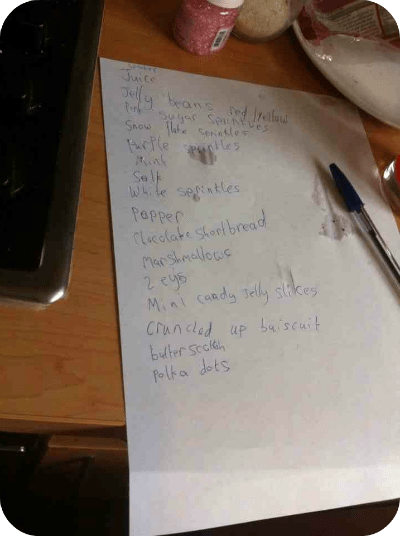 Juice
Jelly beans red/yellow
Pink sugar sprinkles
Snow flake sprinkles
Purple sprinkles
Mint
Salt
White sprinkles
Pepper
Chocolate shortbread
Marshmallows
2 eggs
Mini candy jelly slikes
Cruncled up buiscuit
butter scotch
Polka dots